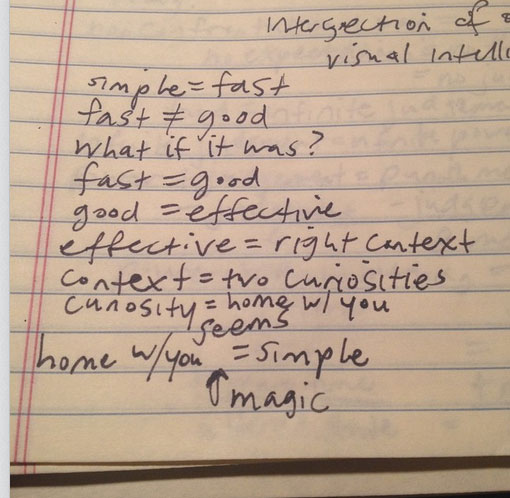 Intersection of
visual intell
simple = fast
fast ≠ good
What if it was?
fast = good
good = effective
effective = right context
context = two curiosities
curiosity = home w/ you
seems
home w/you = simple
↑ magic